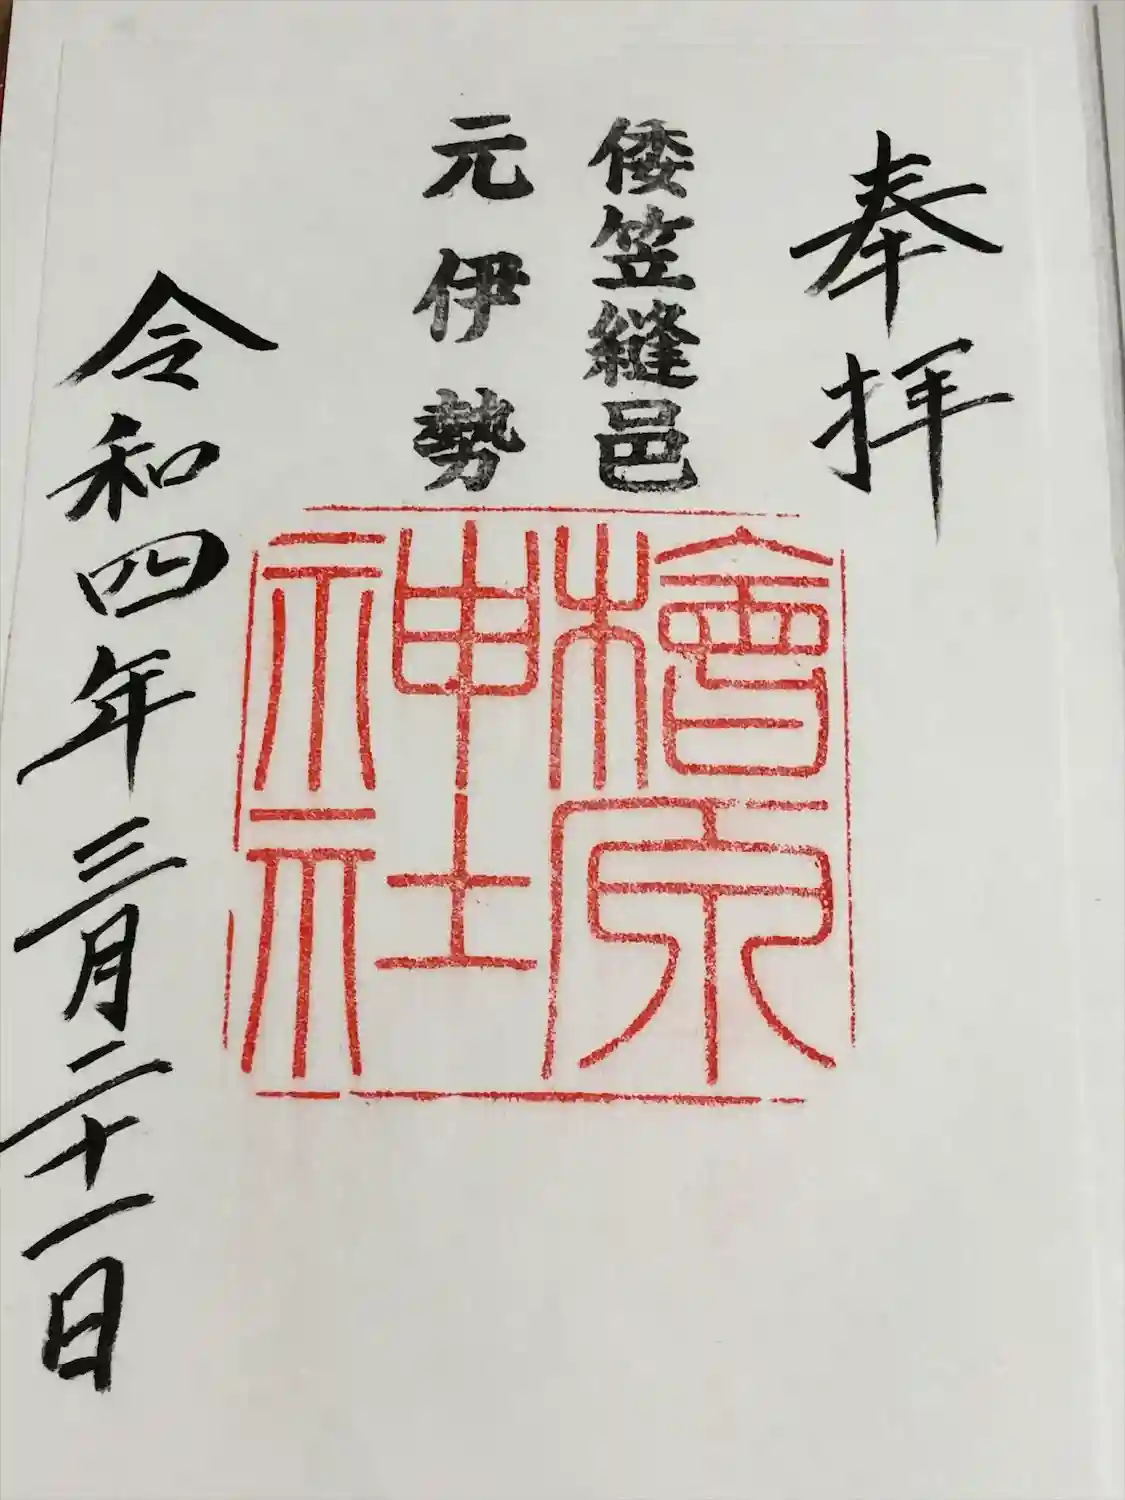 奉拝
倭笠縫邑
元伊勢
檜原
神社
令和四年三月二十一日